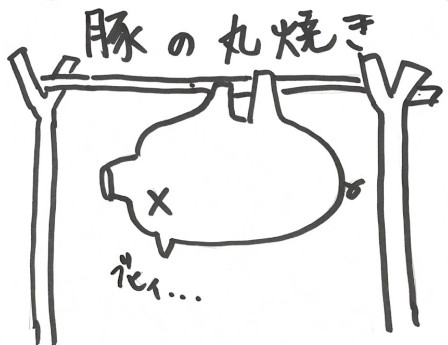 豚の丸焼き
ブヒィ...